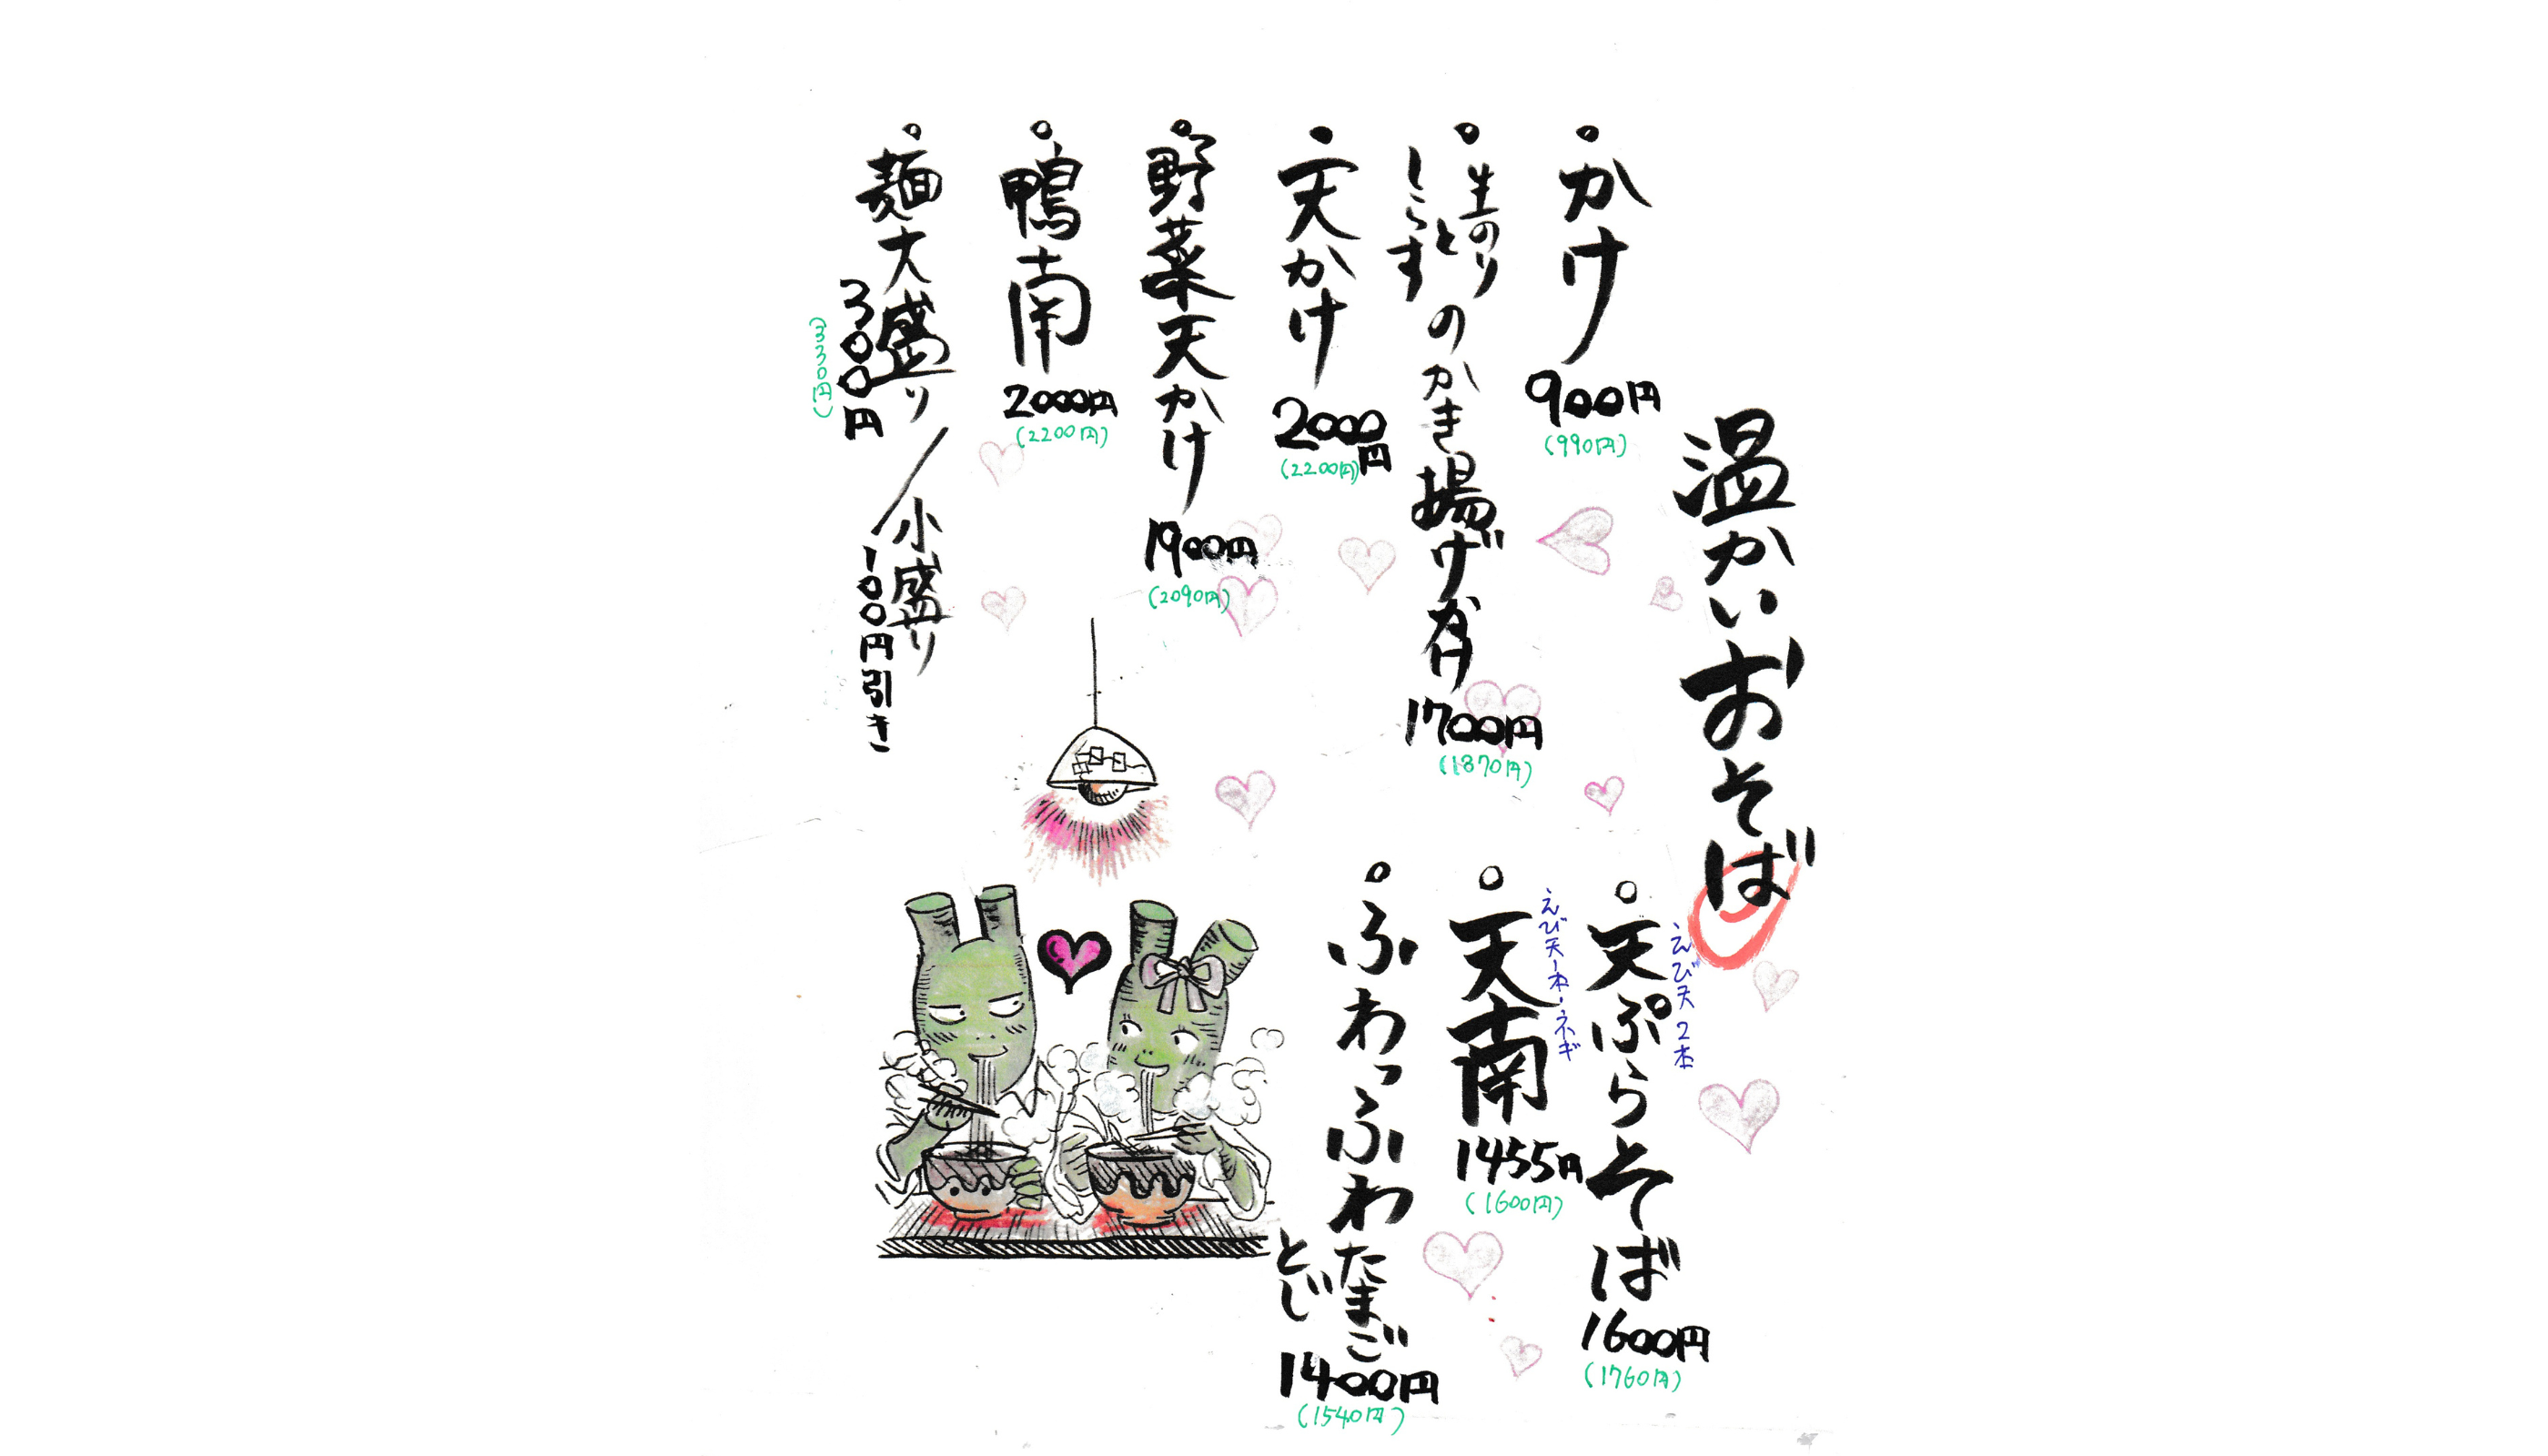 温かいおそば
かけ
900円
(990円)
生のり
と
しらす
のかき揚げかけ
1700円
(1870円)
天かけ
2000円
(2200円)
野菜天かけ
1900円
(2090円)
鴨南
2000円
(2200円)
麺大盛り/小盛り
300円
(330円)
100円引き
天ぷらそば
えび天2本
1600円
(1760円)
天南
えび天一本・ネギ
1455円
(1600円)
ふわっふわたまご
とじ
1400円
(1540円)